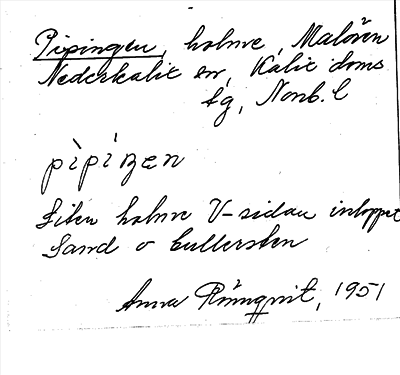 Pipingen, holme, Malören
Nederkalix sn, Kalix doms
tg, Norrb. l
pìpiŋen
Liten holme V-sidan inloppet
Sand o bullersten
Anna Rönnqvist, 1951